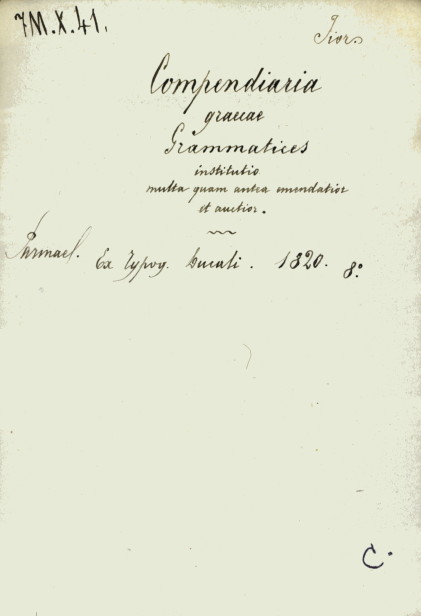 7M.X.41.
Compendiaria
graecae
Grammatices
institutio
multa quam antea emendatior
et auctior.
Parmael. Ex Typog. Ducali. 1820. 8º
C.